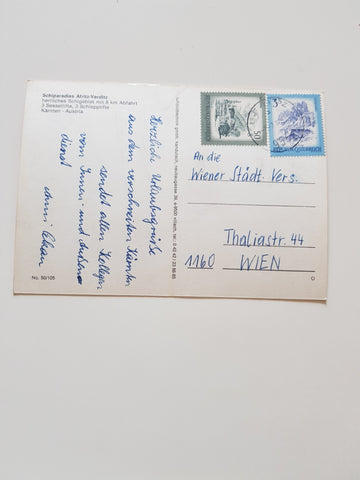 Schiparadies Afritz-Verditz
herrliches Schigebiet mit 8 km Abfahrt
3 Sessellifte, 3 Schlepplifte
Kärnten - Austria
Herzlich Urlaubsgrüße
aus dem verschneiten Kärnten
sendet allen Kollegen
vom Innen- und Außen
dienst
No. 50/105
An die
Wiener Städt. Vers.
Thaliastr. 44
1160 WIEN